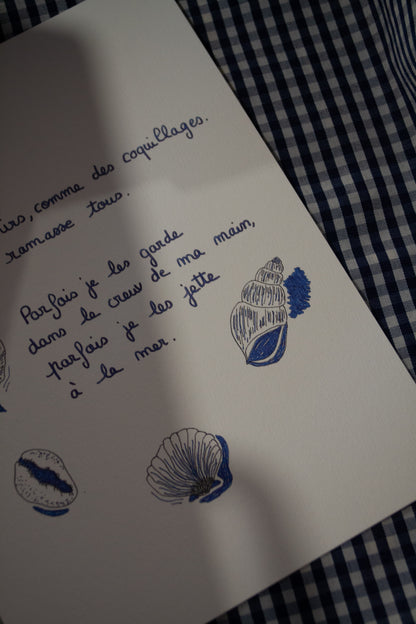 urs, comme des coquillages.
ramasse tous.
Parfois je les garde
dans le creux de ma main,
parfois je les jette
à la mer.